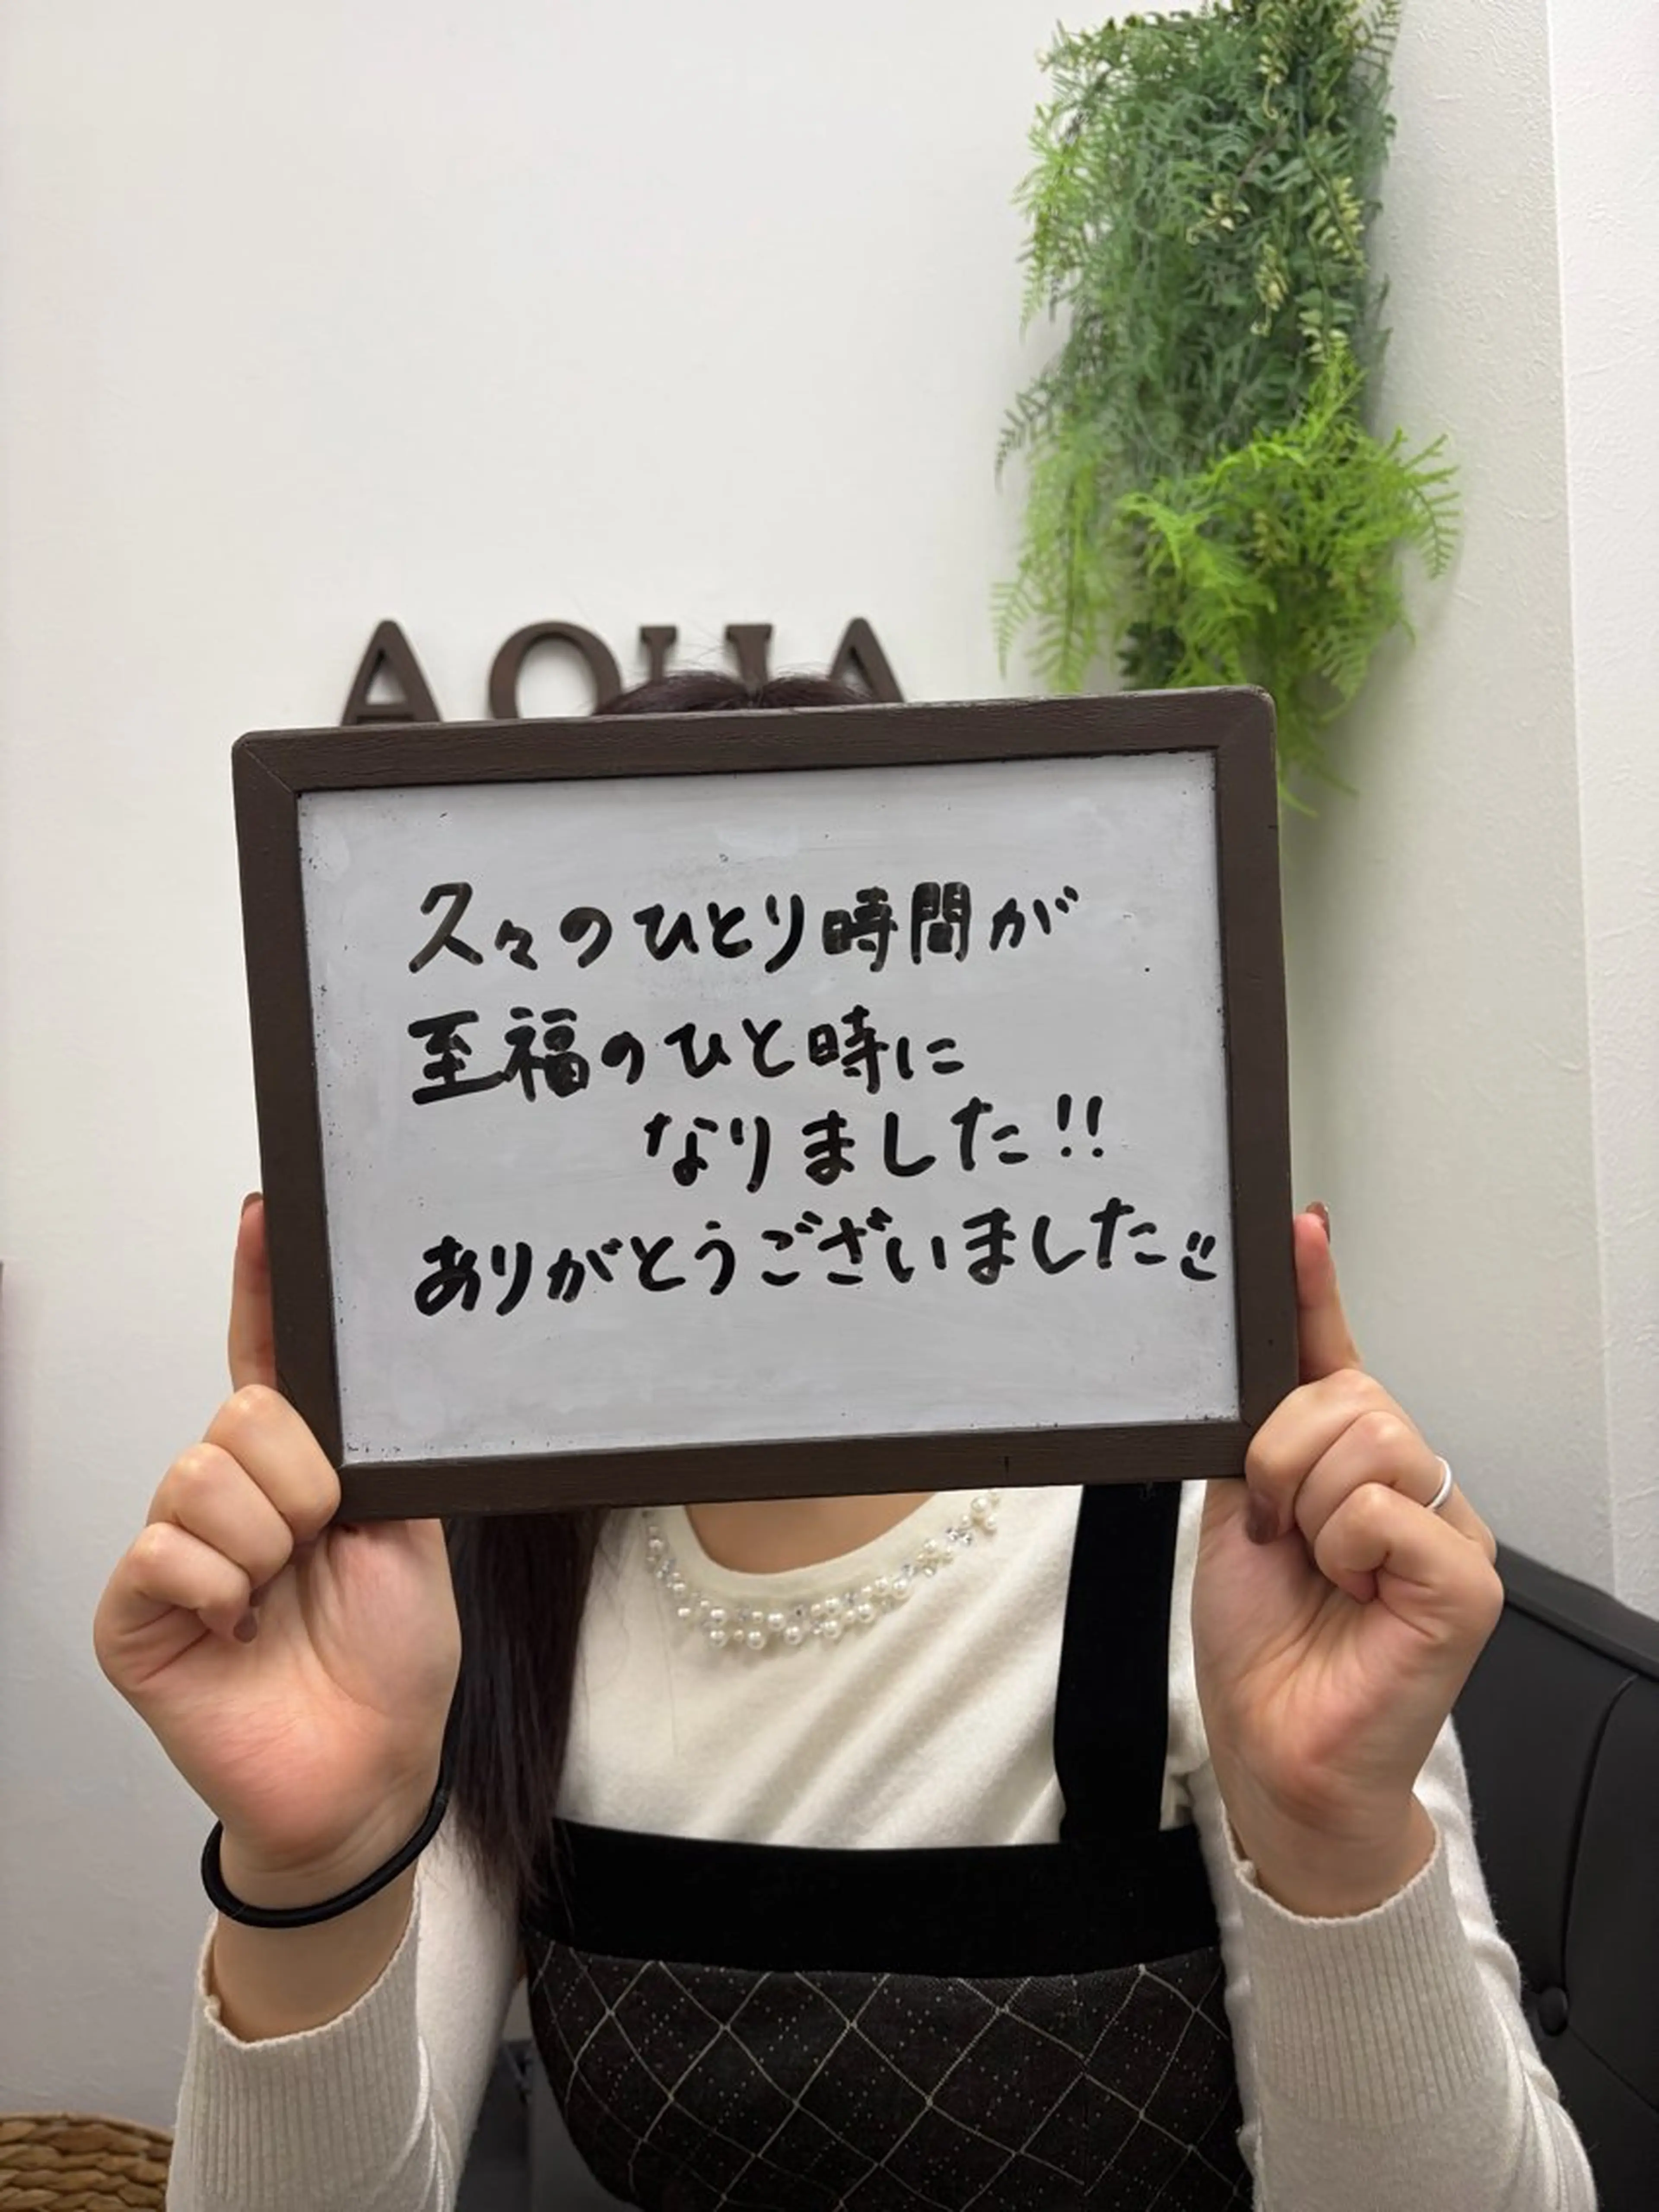 AQUA
久々のひとり時間が
至福のひと時に
なりました!!
ありがとうございました